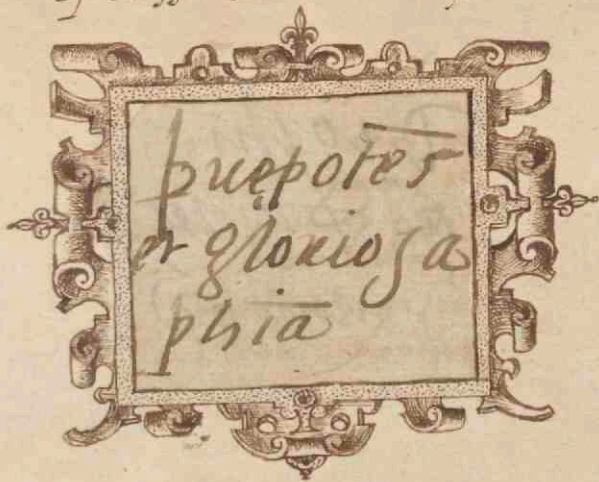 prępotēs
et gloriosa
phīa